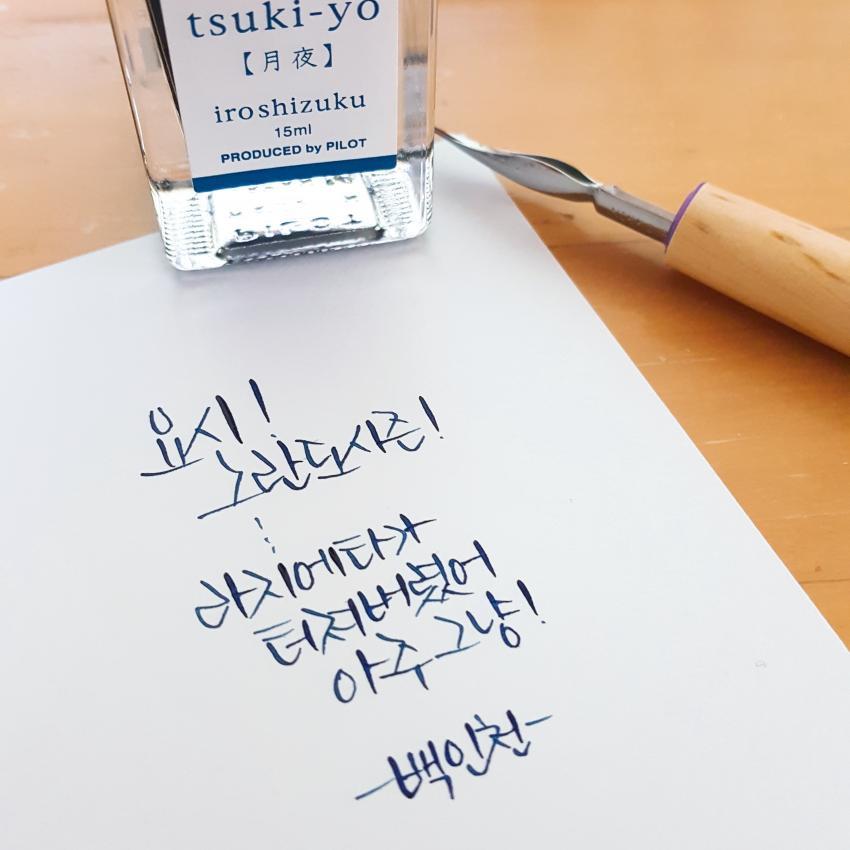 tsuki-yo
【月夜】
iroshizuku
15ml
PRODUCED by PILOT
요시!
그란도시즌!
⋮
라지에타가
터져버렸어
아주그냥!
-백인천-